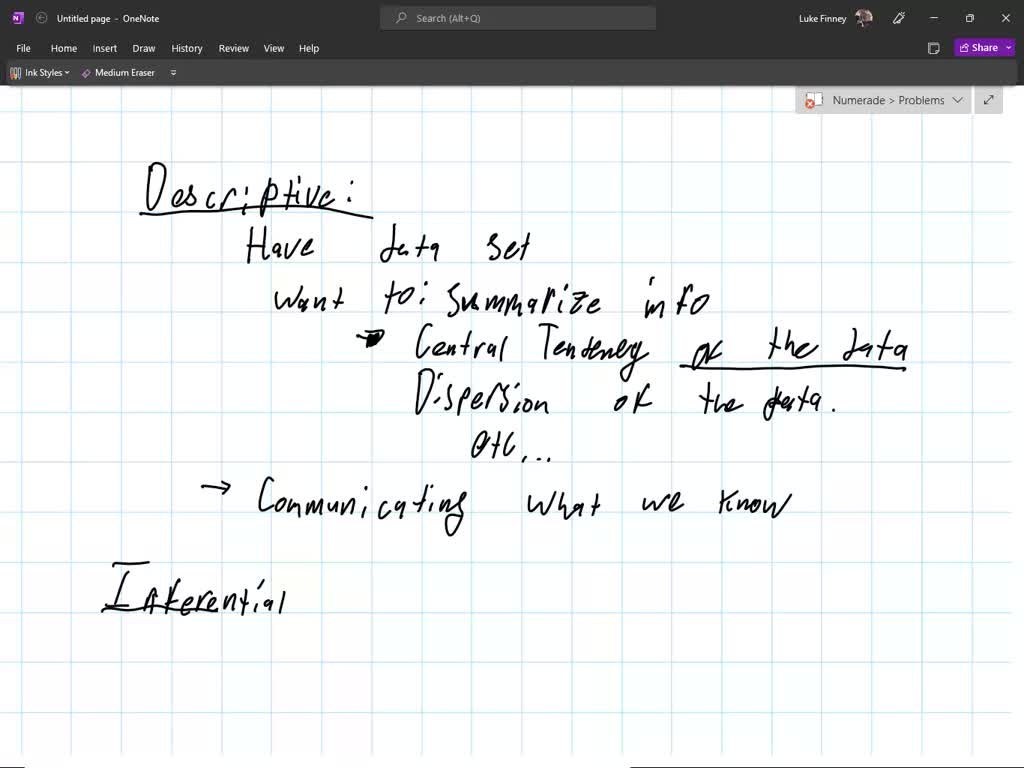 Untitled page - OneNote
Search (Alt+Q)
Luke Finney
File Home Insert Draw History Review View Help
Share
Ink Styles
Medium Eraser
Numerade > Problems
Descriptive:
Have data set
want to: summarize info
→ Central Tendency of the data
Dispersion of the data.
etc...
→ Communicating what we know
Inferential